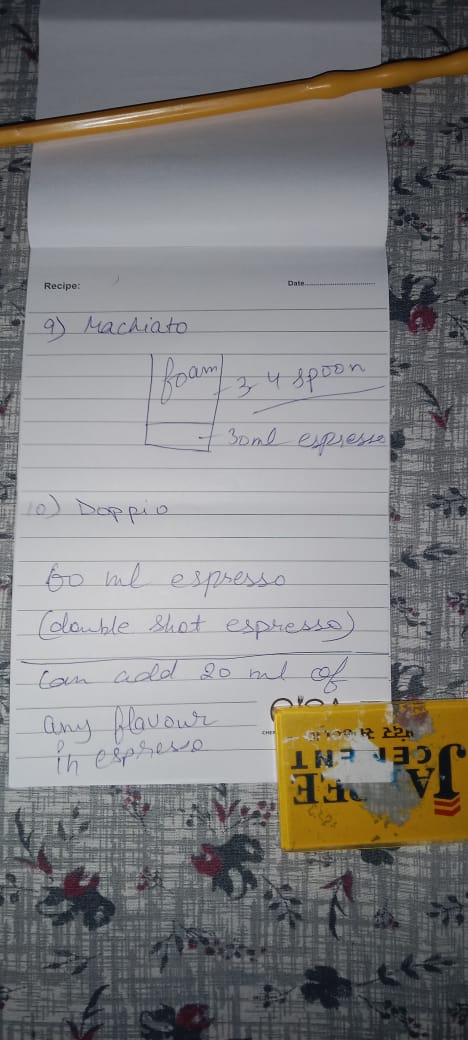 Recipe:
Date
9) Machiato
foam
3, 4 spoon
30ml espresso
10) Doppio
60 ml espresso
(double shot espresso)
Can add 20 ml of
any flavour
in espresso
CEMENT